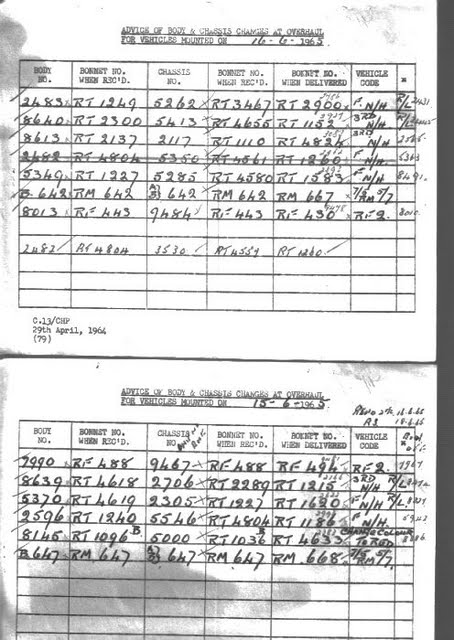 ADVICE OF BODY & CHASSIS CHANGES AT OVERHAUL
FOR VEHICLES MOUNTED ON 16-6-1965
BODY NO. BONNET NO. WHEN REC'D. CHASSIS NO. BONNET NO. WHEN REC'D. BONNET NO. WHEN DELIVERED VEHICLE CODE
2483 RT 1249 5262 RT 3467 RT 2900 F N/H
8640 RT 2300 5413 RT 4655 RT 1152 3RD N/H
8613 RT 2137 2117 RT 1110 RT 4824 3RD N/H
2482 RT 4804 5350 RT 4561 RT 1260 F N/H 5363
5349 RT 1227 5285 RT 4580 RT 1583 F N/H 8491
B 642 RM 642 642 RM 642 RM 667 7/5 RM 5/7
8013 RF 443 9484 RF 443 RF 430 RF 2. 8010
2482 RT 4804 3530 RT 4557 RT 1260
C.13/CHP
29th April, 1964
(79)
ADVICE OF BODY & CHASSIS CHANGES AT OVERHAUL
FOR VEHICLES MOUNTED ON 15-6-1965
BODY NO. BONNET NO. WHEN REC'D. CHASSIS NO. BONNET NO. WHEN REC'D. BONNET NO. WHEN DELIVERED VEHICLE CODE
7990 RF 488 9467 RF 488 RF 494 RF 2. 7967
8639 RT 4618 2706 RT 2289 RT 1215 3RD N/H
5370 RT 4619 2305 RT 1227 RT 1620 F N/H
2596 RT 1240 5546 RT 4804 RT 1186 F N/H
8145 RT 1096 5000 RT 1036 RT 4633 CHANGE COLOUR TO RED
B 647 RM 647 647 RM 647 RM 668 7/5 RM 5/7